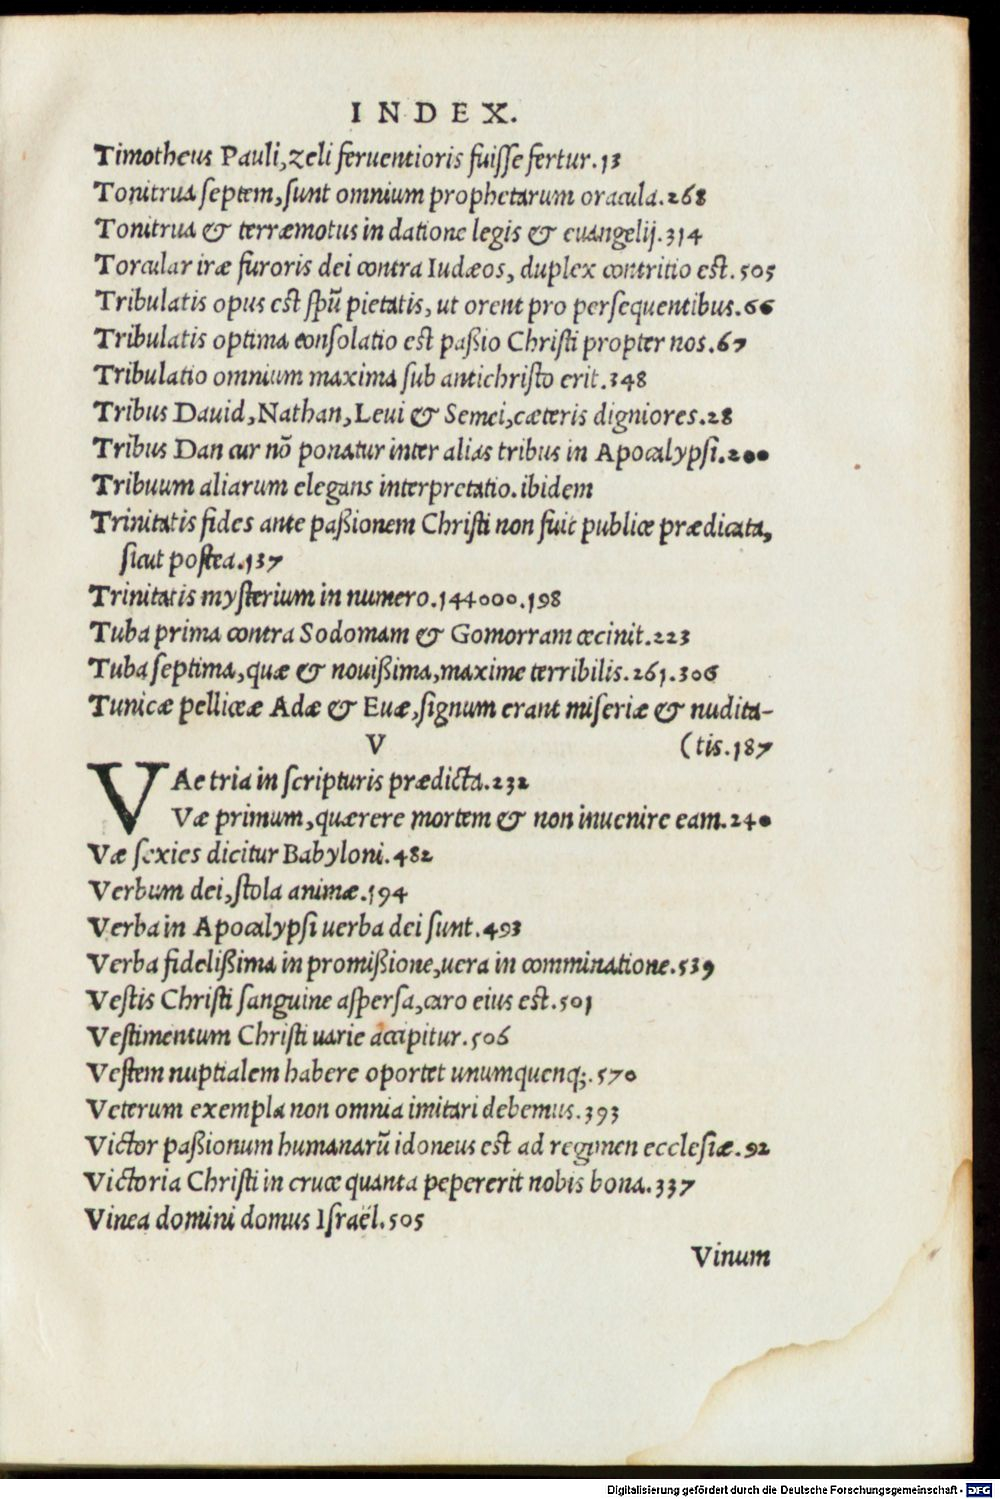 INDEX.
Timotheus Pauli, zeli feruentioris fuisse fertur.13
Tonitrua septem, sunt omnium prophetarum oracula.268
Tonitrua & terræmotus in datione legis & euangelij.314
Torcular iræ furoris dei contra Iudæos, duplex contritio est.505
Tribulatis opus est spũ pietatis, ut orent pro persequentibus.66
Tribulatis optima consolatio est paßio Christi propter nos.67
Tribulatio omnium maxima sub antichristo erit.348
Tribus Dauid, Nathan, Leui & Semei, cæteris digniores.28
Tribus Dan cur nõ ponatur inter alias tribus in Apocalypsi.200
Tribuum aliarum elegans interpretatio. ibidem
Trinitatis fides ante paßionem Christi non fuit publice prædicata,
sicut postea.137
Trinitatis mysterium in numero.144000.198
Tuba prima contra Sodomam & Gomorram cecinit.223
Tuba septima, quæ & nouißima, maxime terribilis.261.306
Tunicæ pelliceæ Adæ & Euæ, signum erant miseriæ & nudita-
V (tis.187
VAe tria in scripturis prædicta.232
Væ primum, quærere mortem & non inuenire eam.240
Væ sexies dicitur Babyloni.482
Verbum dei, stola animæ.194
Verba in Apocalypsi uerba dei sunt.493
Verba fidelißima in promißione, uera in comminatione.539
Vestis Christi sanguine aspersa, caro eius est.501
Vestimentum Christi uarie accipitur.506
Vestem nuptialem habere oportet unumquenq;.570
Veterum exempla non omnia imitari debemus.393
Victor paßionum humanarũ idoneus est ad regimen ecclesiæ.92
Victoria Christi in cruce quanta pepererit nobis bona.337
Vinea domini domus Israël.505
Vinum
Digitalisierung gefördert durch die Deutsche Forschungsgemeinschaft - DFG